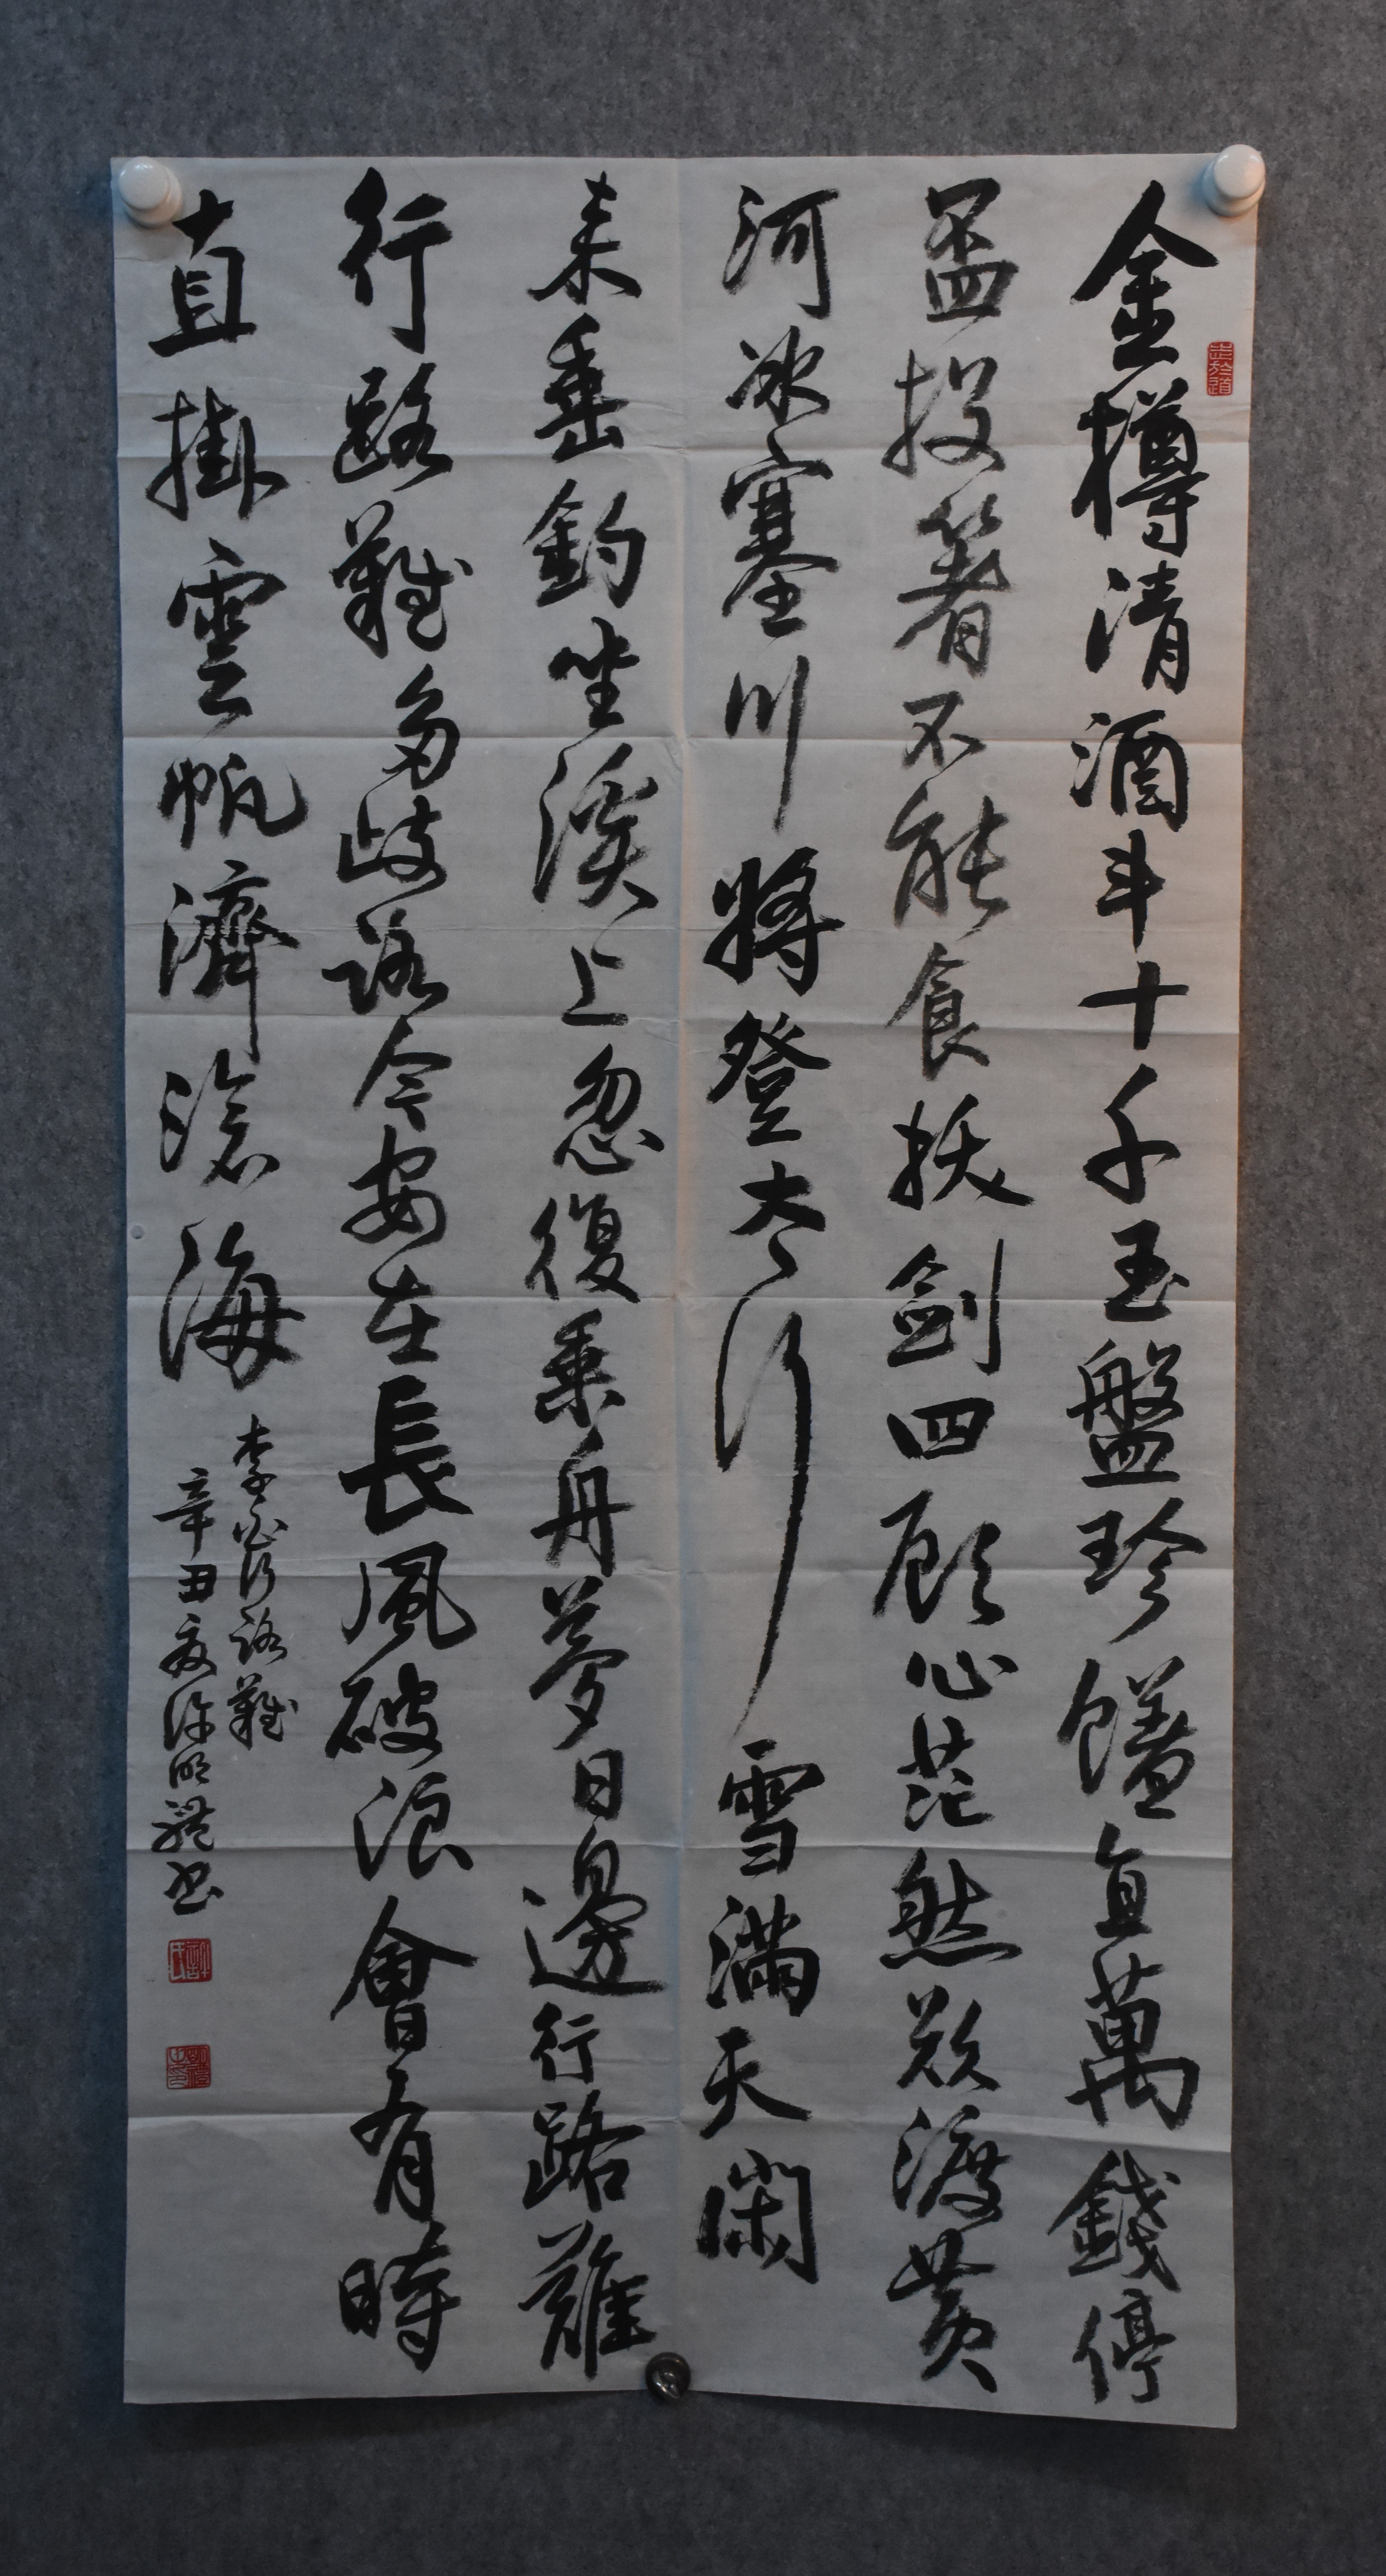 志於道
金樽清酒斗十千玉盤珍饈直萬錢停
盃投箸不能食拔劍四顧心茫然欲渡黄
河冰塞川將登太行雪滿天閑
来垂釣坐溪上忽復乘舟夢日邊行路難
行路難多歧路今安在長風破浪會有時
直掛雲帆濟滄海
李白行路難
辛丑夏許明禮书
許氏